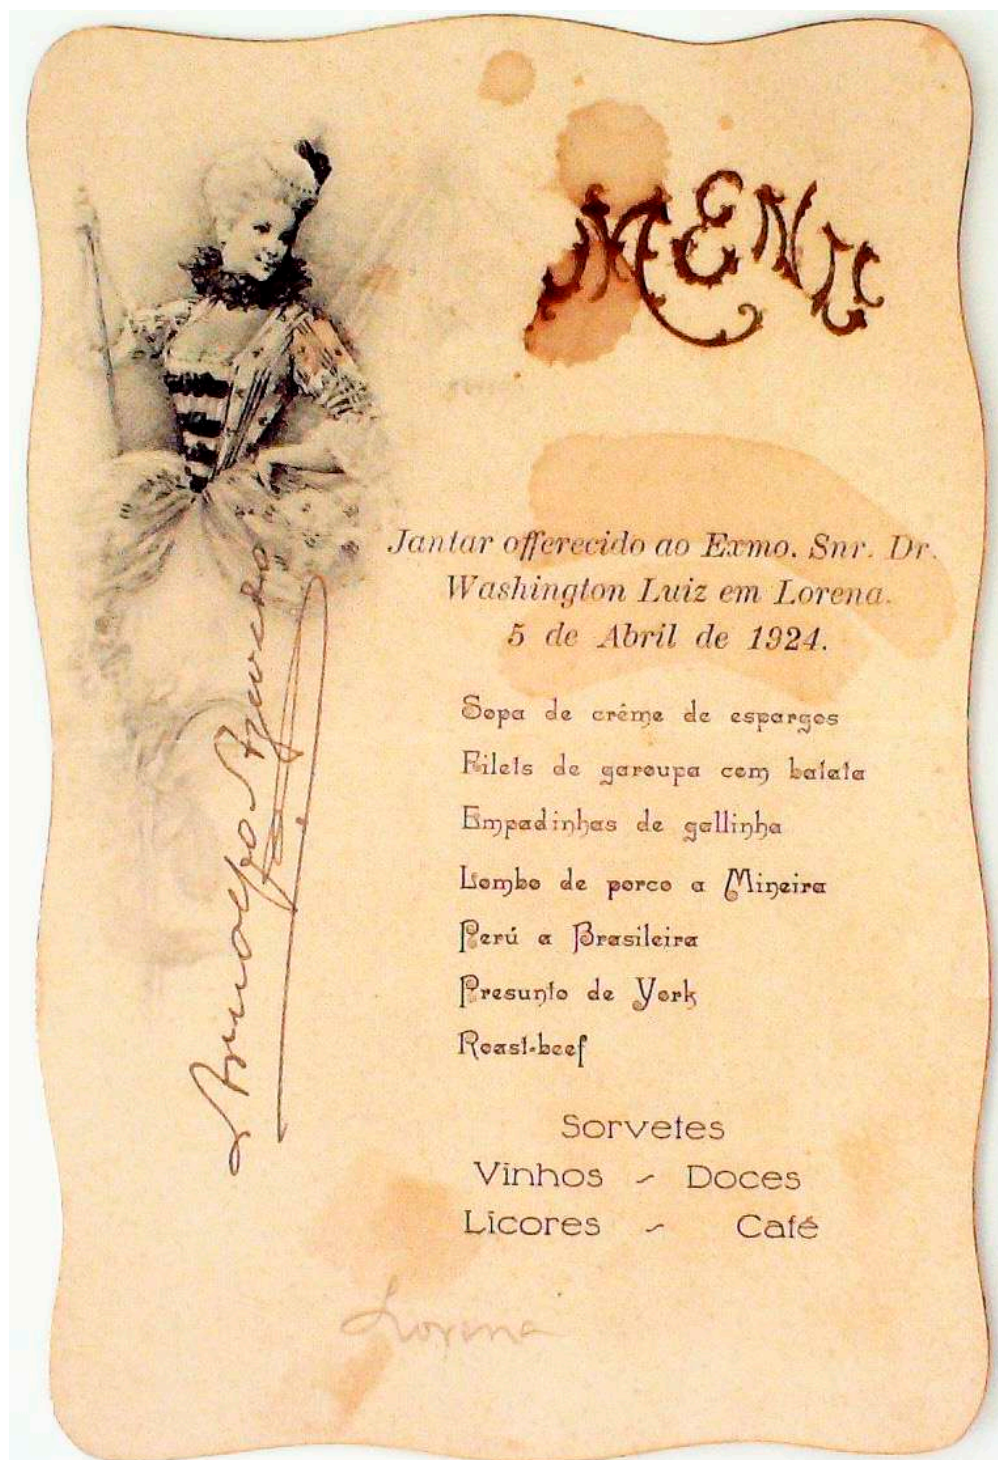 MENU
Jantar offerecido ao Exmo. Snr. Dr.
Washington Luiz em Lorena.
5 de Abril de 1924.
Sopa de crême de espargos
Filets de garoupa com batata
Empadinhas de gallinha
Lombo de porco a Mineira
Perú a Brasileira
Presunto de York
Roast-beef
Sorvetes
Vinhos - Doces
Licores - Café
Arnolfo Azevedo
Lorena